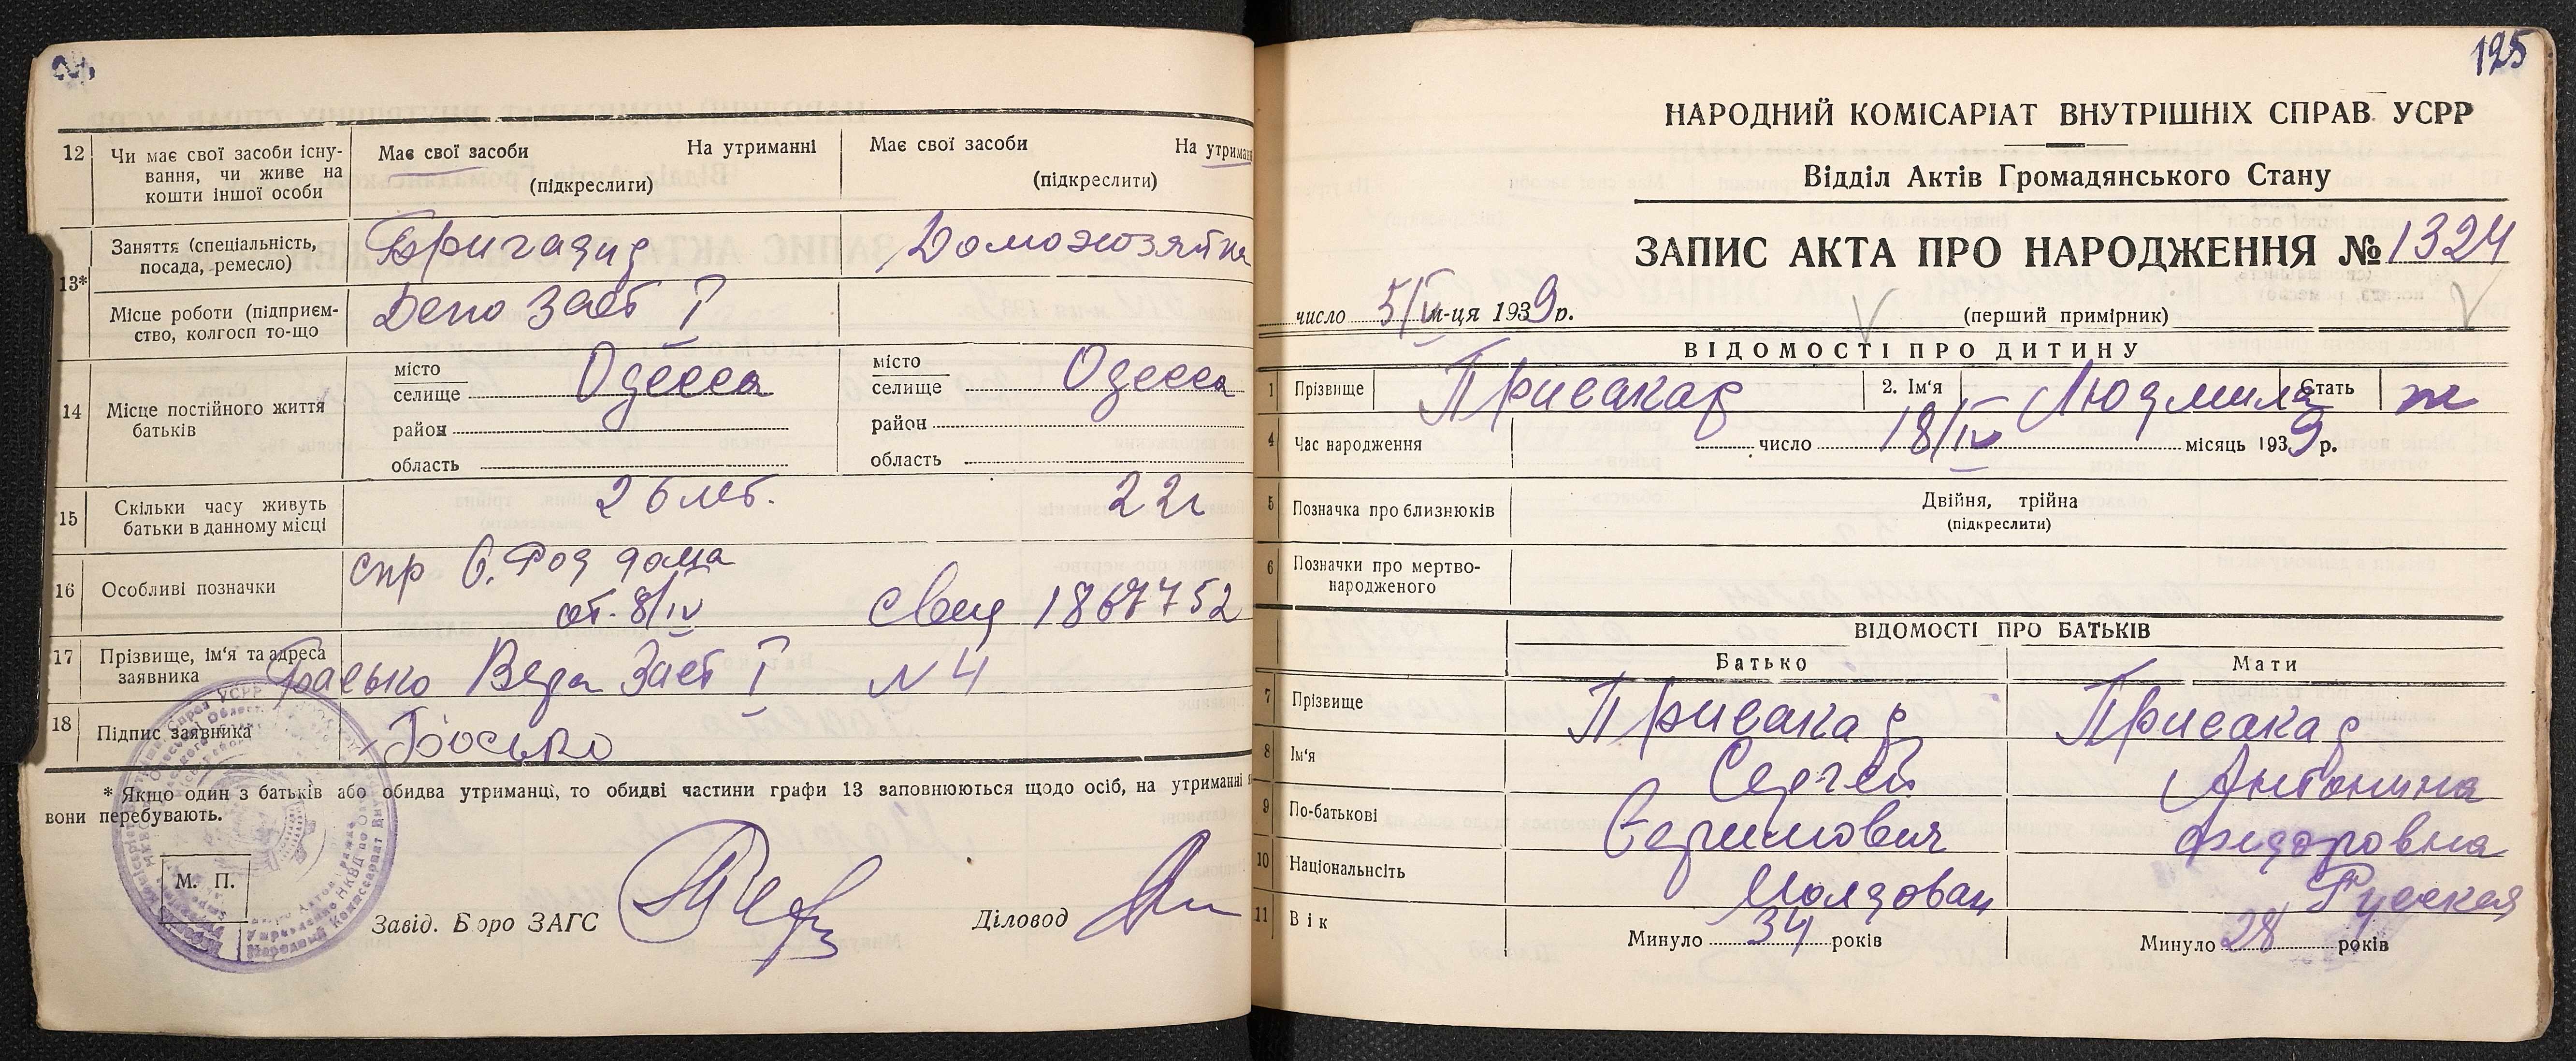 12 Чи має свої засоби існу-
вання, чи живе на
кошти іншої особи
Має свої засоби На утриманні
(підкреслити)
Має свої засоби На утриман
(підкреслити)
13*
Заняття (спеціальність,
посада, ремесло)
Бригадир Домохозяйка
Місце роботи (підприєм-
ство, колгосп то-що
Депо Заст I
14 Місце постійного життя
батьків
місто
селище Одесса
район
область
місто
селище Одесса
район
область
15 Скільки часу живуть
батьки в данному місці
26 лет. 22 г
16 Особливі позначки
спр 6. Род дома
от. 8/IV Свид 1867752
17 Прізвище, ім'я та адреса
заявника
Вера Заст I N 4
18 Підпис заявника
* Якщо один з батьків або обидва утриманці, то обидві частини графи 13 заповнюються щодо осіб, на утриманні я
вони перебувають.
М. П.
Завід. Бюро ЗАГС Діловод
125
НАРОДНИЙ КОМІСАРІАТ ВНУТРІШНІХ СПРАВ УСРР
Відділ Актів Громадянського Стану
ЗАПИС АКТА ПРО НАРОДЖЕННЯ № 1324
число 5/IV м-ця 1939 р. (перший примірник)
ВІДОМОСТІ ПРО ДИТИНУ
1 Прізвище Присакар 2. Ім'я Людмила Стать ж
4 Час народження число 18/IV місяць 1939 р.
5 Позначка про близнюків Двійня, трійна
(підкреслити)
6 Позначки про мертво-
народженого
ВІДОМОСТІ ПРО БАТЬКІВ
Батько Мати
7 Прізвище Присакар Присакар
8 Ім'я Сергей Антонина
9 По-батькові Федоровна
10 Національнсіть Молдован Русская
11 Вік Минуло 34 років Минуло 28 років